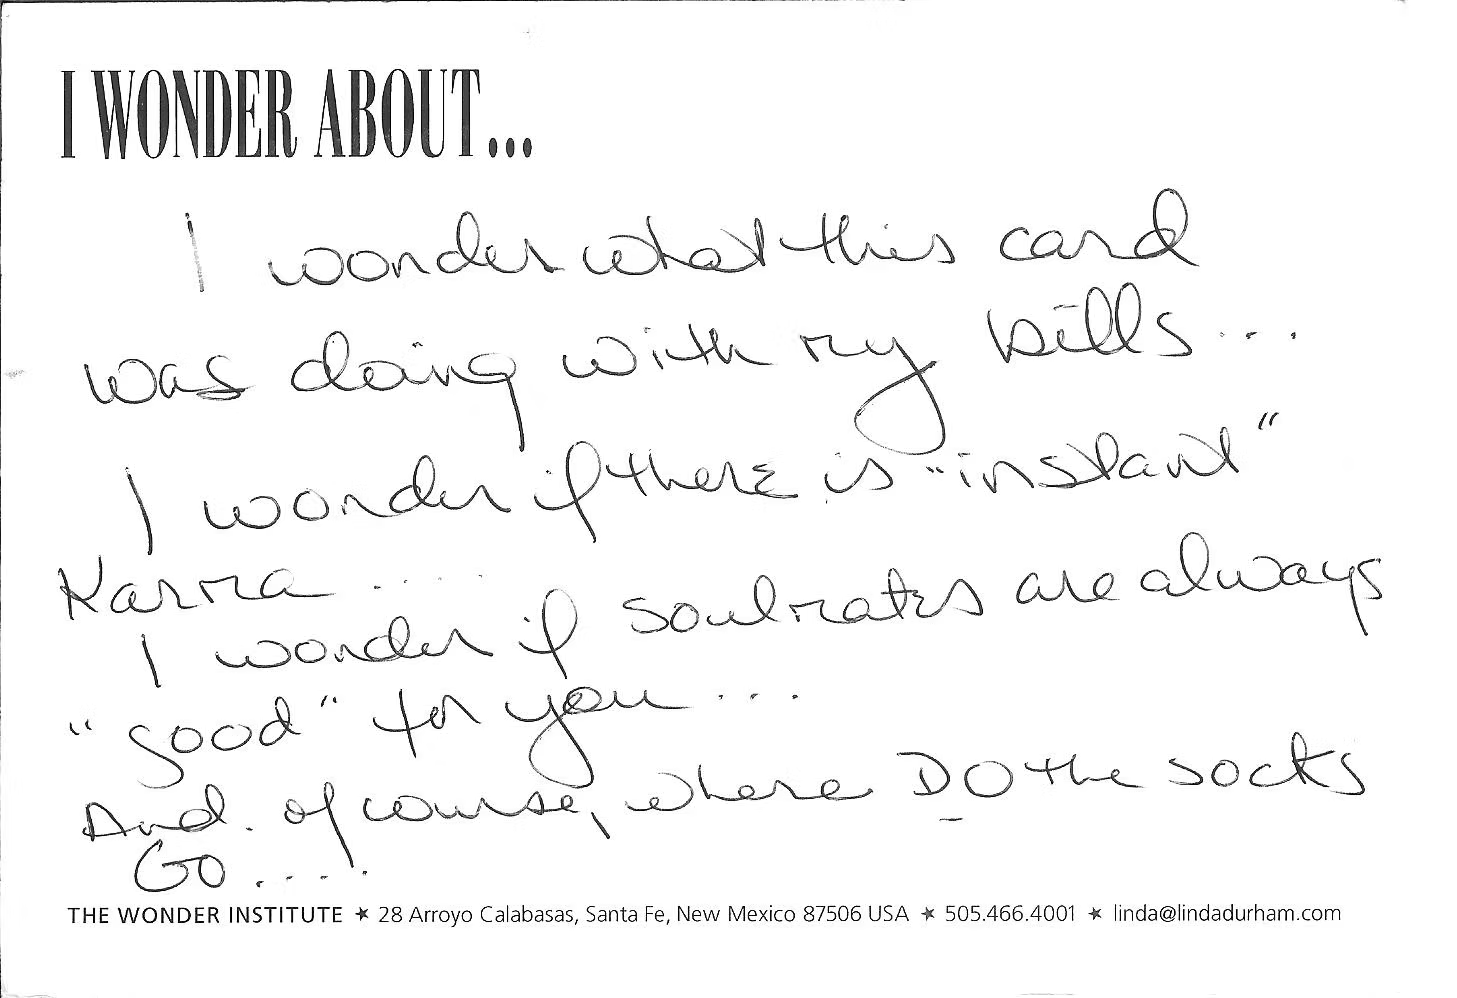 I WONDER ABOUT...
I wonder what this card
was doing with my bills...
I wonder if there is "instant"
Karma.....
I wonder if soulmates are always
"good" for you...
And. of course, where DO the socks
GO.....
THE WONDER INSTITUTE ★ 28 Arroyo Calabasas, Santa Fe, New Mexico 87506 USA ★ 505.466.4001 ★ linda@lindadurham.com